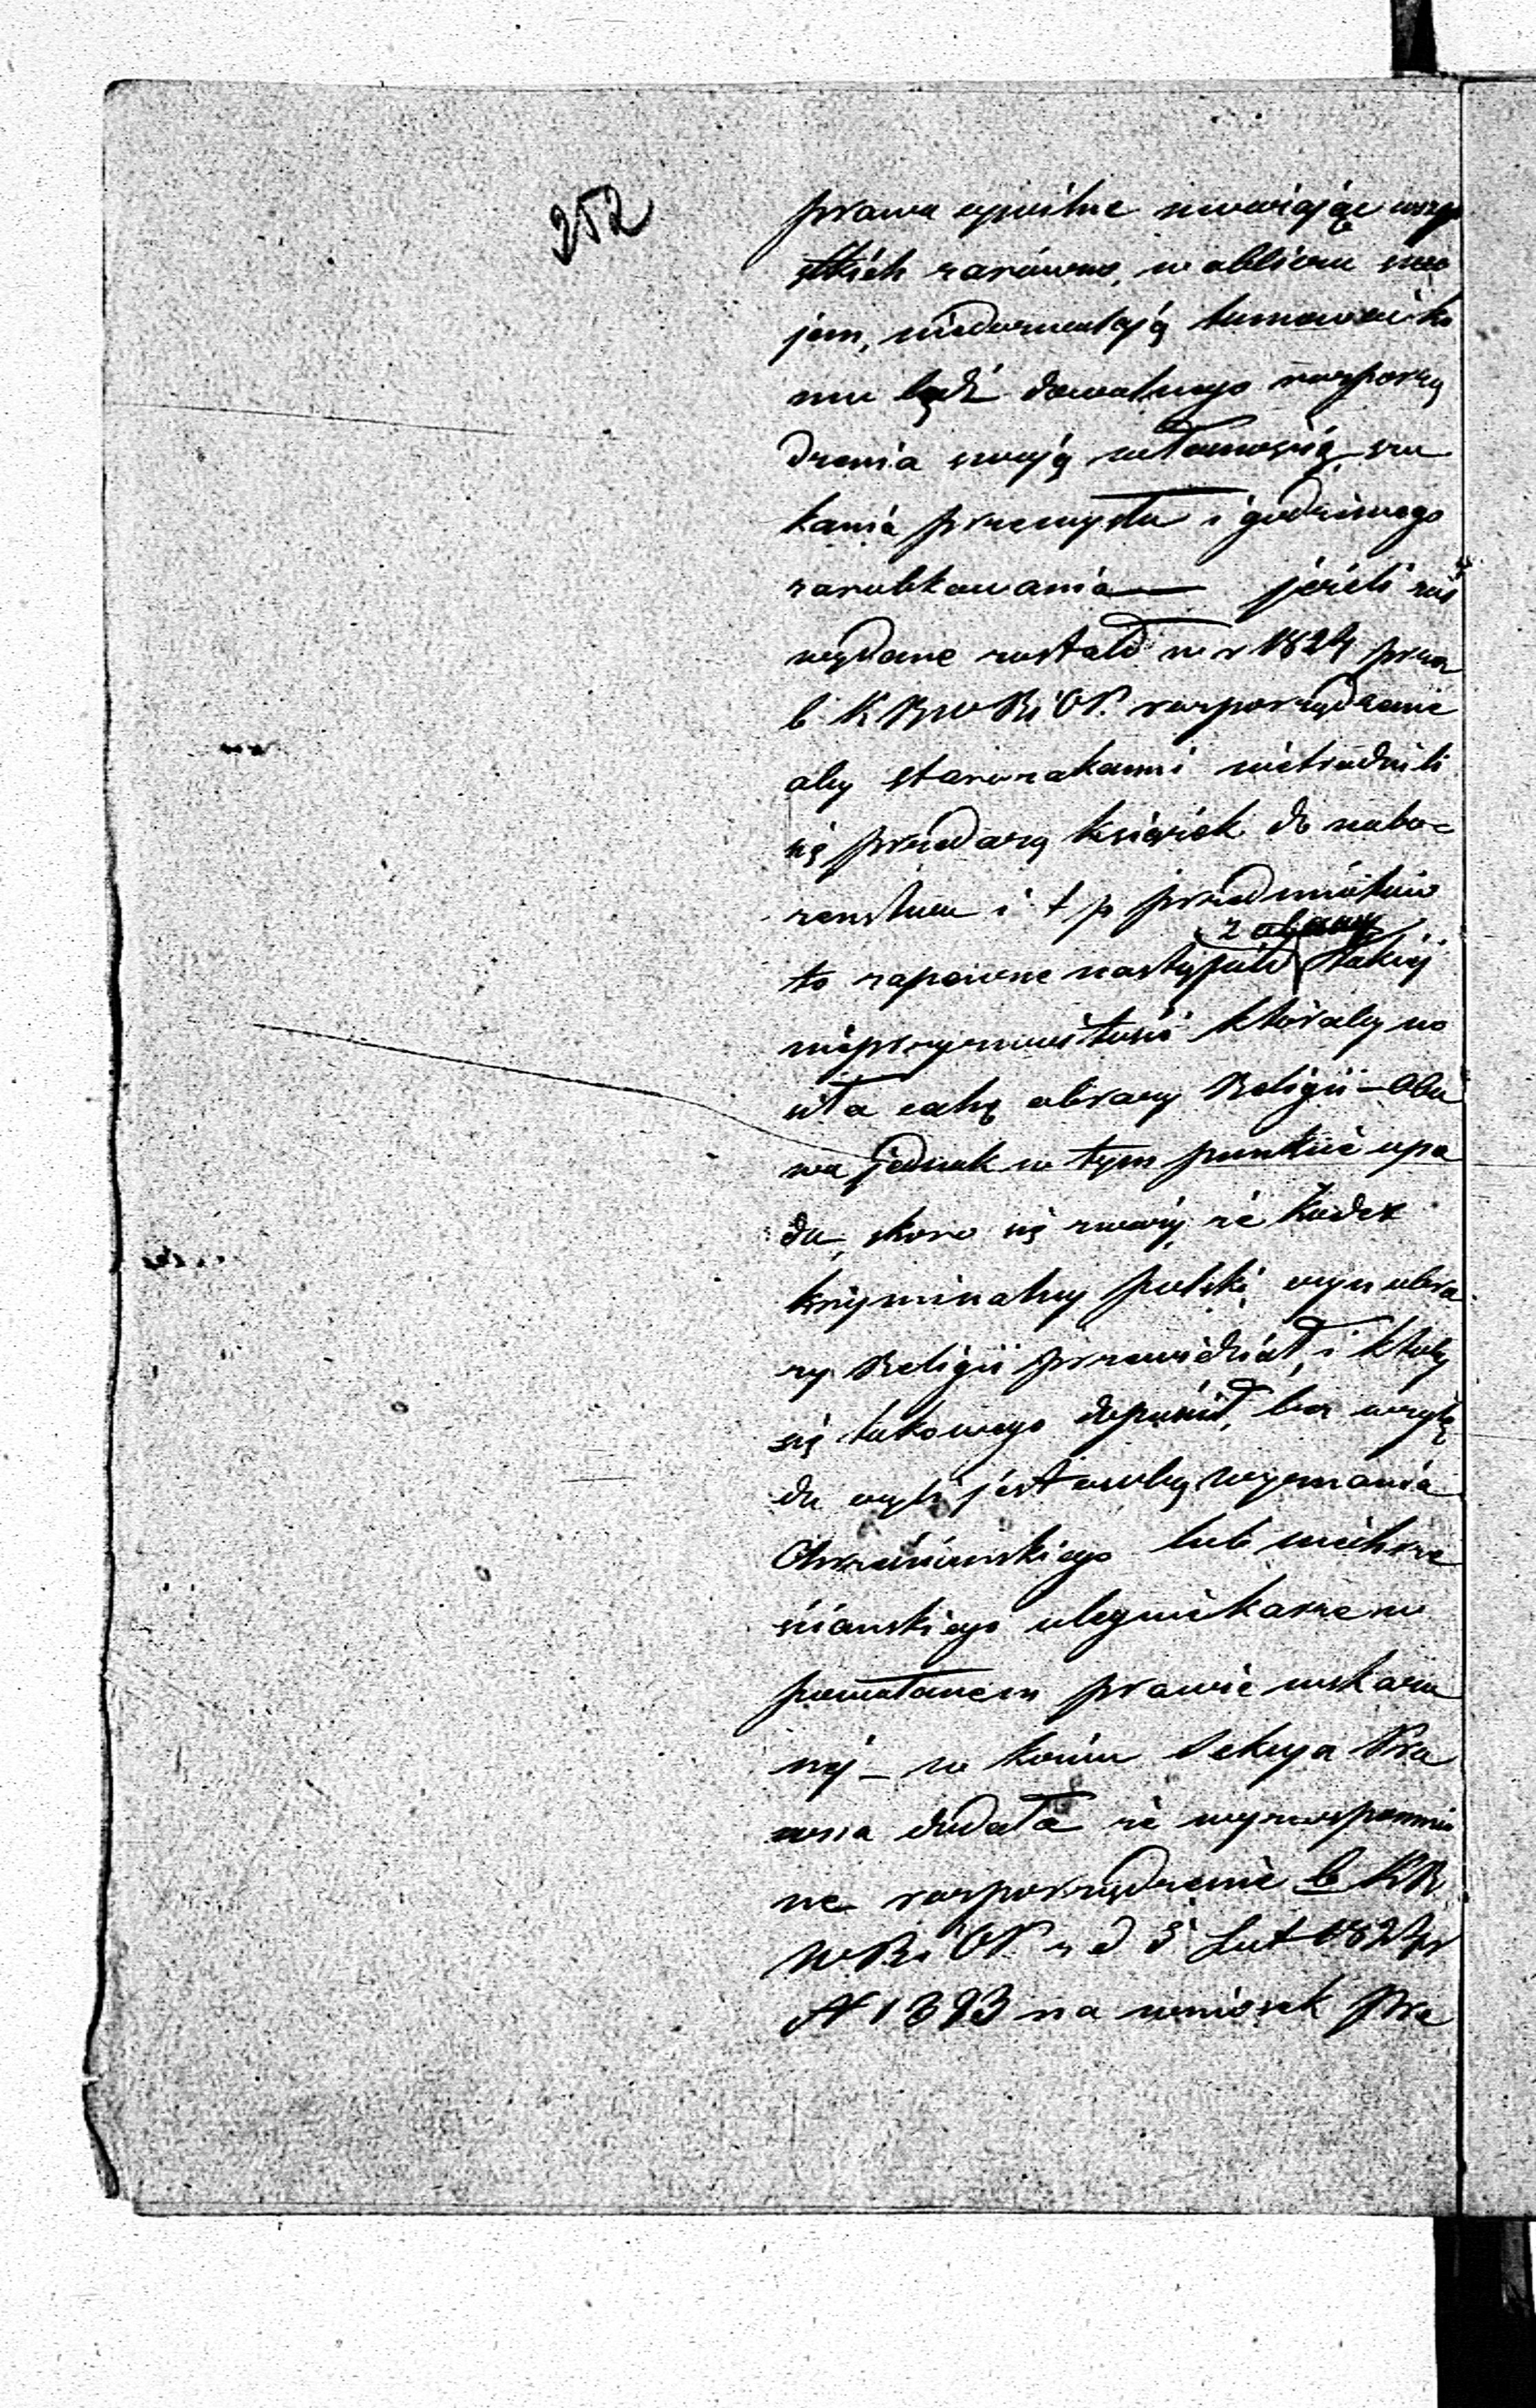 252
prawa cywilne uważając wszy
stkich zarówno, w obliczu swo
jem, niedozwalają tamować ko
mu bądź dowolnego rozporzą
dzenia swoją własnością, szu
kania przemysłu i godziwego
zarobkowania — jeżeli zaś
wydane zostało w r 1824 przez
b KRWRiOP. rozporządzenie
aby starozakonni nietrudnili
się przedażą książek do nabo-
żenstwa i t p przedmiotów
to zapewne nastąpiło z obawy takiej
nieprzyzwoitości któraby no
siła cechę obrazy Religii – Oba
wa jednak w tym punkcie upa
da, skoro się zważy, że Kodex
kryminalny polski czyn obra
zy Religii przewidział, i ktoby
się takowego dopuścił, bez wzglę
du czyli jest osobą wyznania
Chrześciańskiego lub niechrze
ściańskiego ulegnie karze w
powołanem prawie wskaza
nej – w końcu Sekcya Pra
wna dodała że wyzwspomnio
ne rozporządzenie b KR
WRiOP z d 5 Lut 1824 r
N 1393 na wniosek Pre